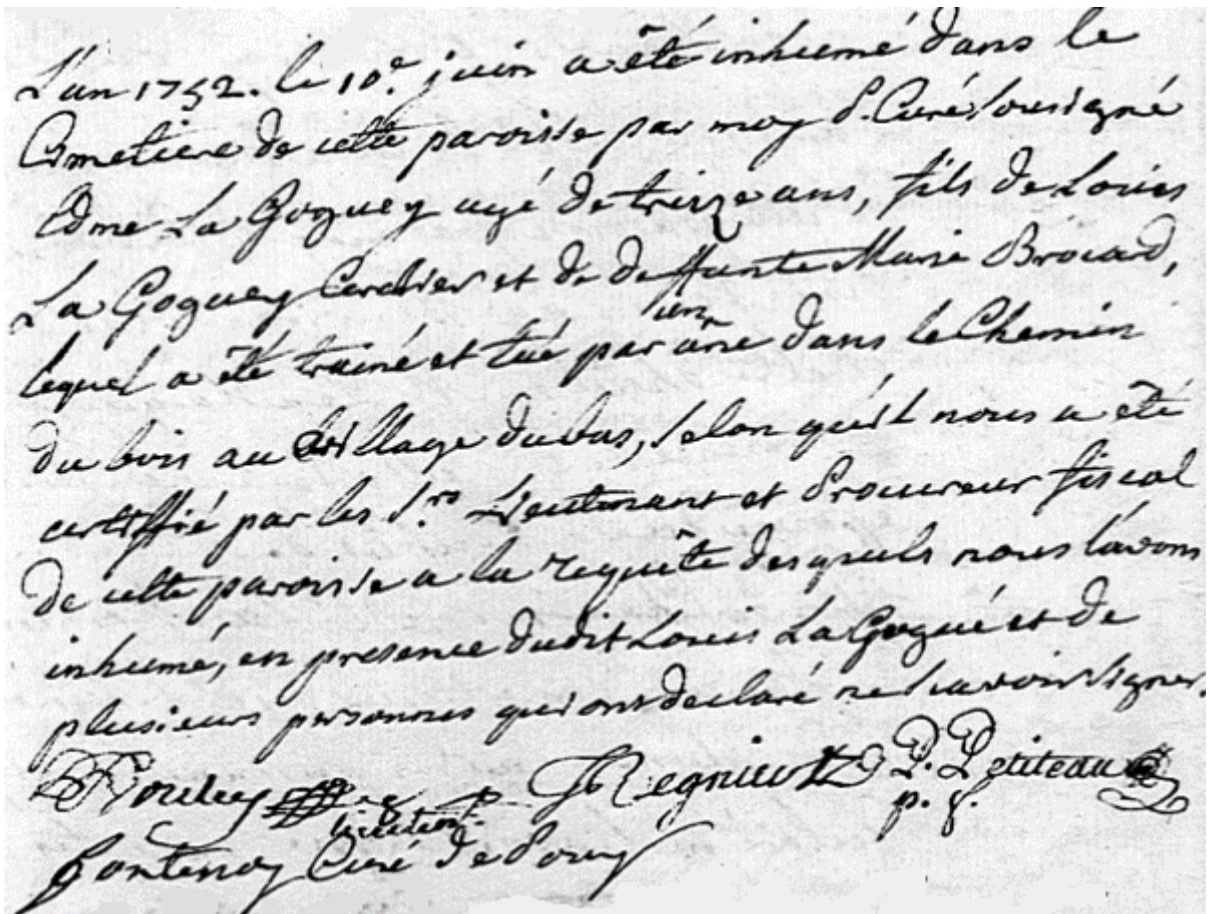 L'an 1752. le 10e. juin a été inhumé dans le
Cimetiere de cette paroisse par moy P. Curé sousigné
Edme La Goguey agé de treize ans, fils de Louis
La Goguey Cerclier et de deffunte Marie Brocard,
lequel a été trainé et tué par un âne dans le Chemin
du bois au village du bas, selon qu'il nous a été
certiffié par les Srs. Lieutenant et Procureur fiscal
de cette paroisse a la requête desquels nous l'avons
inhumé, en presence dudit Louis La Gogué et de
plusieurs personnes qui ont declaré ne sçavoir signer.
lieuten. P. Petiteau
p. f.
Fontenoy Curé de